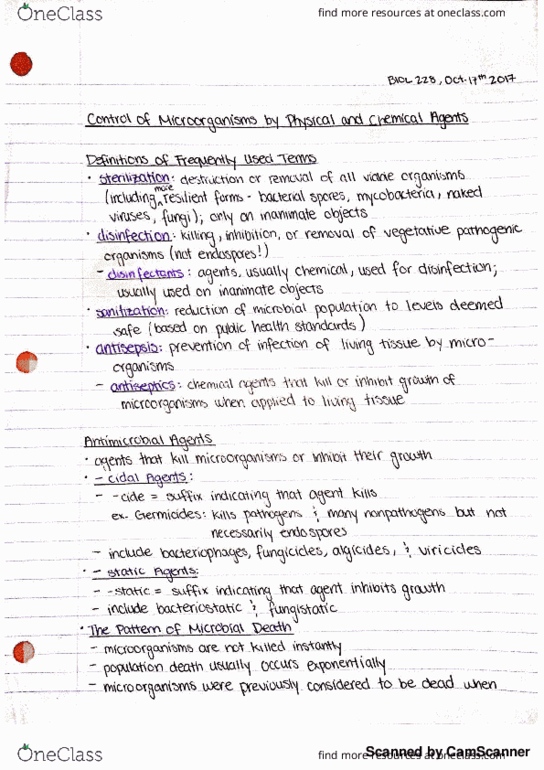 OneClass
find more resources at oneclass.com
BIOL 228, Oct. 17th 2017
Control of Microorganisms by Physical and Chemical Agents
Definitions of Frequently Used Terms
· sterilization: destruction or removal of all viable organisms
(including more resilient forms - bacterial spores, mycobacteria, naked
viruses, fungi); only on inanimate objects
· disinfection: killing, inhibition, or removal of vegetative pathogenic
organisms (not endospores!)
- disinfectants: agents, usually chemical, used for disinfection;
usually used on inanimate objects
· sanitization: reduction of microbial population to levels deemed
safe (based on public health standards)
· antisepsis: prevention of infection of living tissue by micro-
organisms
- antiseptics: chemical agents that kill or inhibit growth of
microorganisms when applied to living tissue
Antimicrobial Agents
· agents that kill microorganisms or inhibit their growth
· - cidal Agents:
- -cide = suffix indicating that agent kills
ex. Germicides: kills pathogens & many nonpathogens but not
necessarily endospores
- include bacteriophages, fungicicles, algicides, & viricicles
· - static Agents:
- -static = suffix indicating that agent inhibits growth
- include bacteriostatic & fungistatic
· The Pattern of Microbial Death
- microorganisms are not killed instantly
- population death usually occurs exponentially
- microorganisms were previously considered to be dead when
OneClass
find more resources at oneclass.com
Scanned by CamScanner